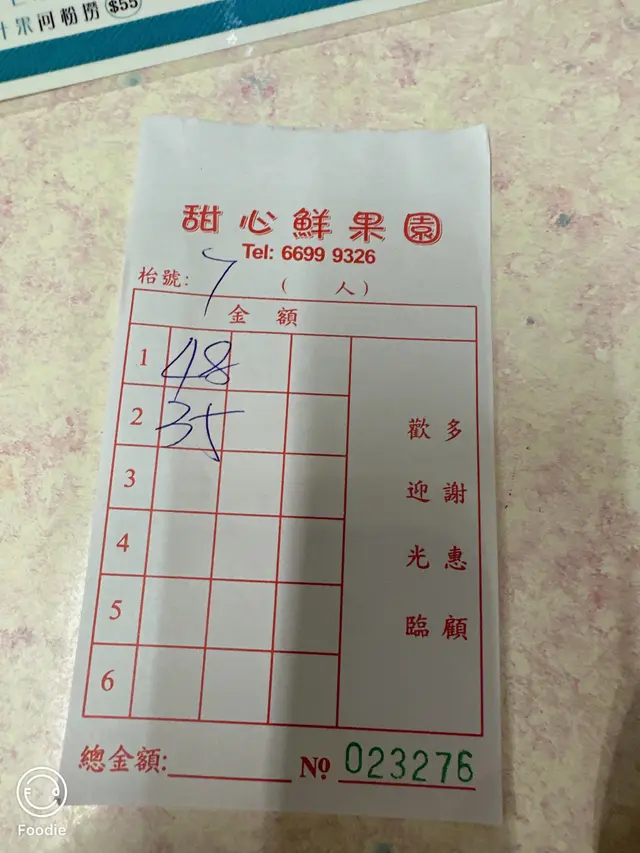 果河粉撈 $55
甜心鮮果園
Tel: 6699 9326
枱號: 7 ( 人)
金額
1 48
2 35
3
4
5
6
多謝惠顧
歡迎光臨
總金額: № 023276
Foodie